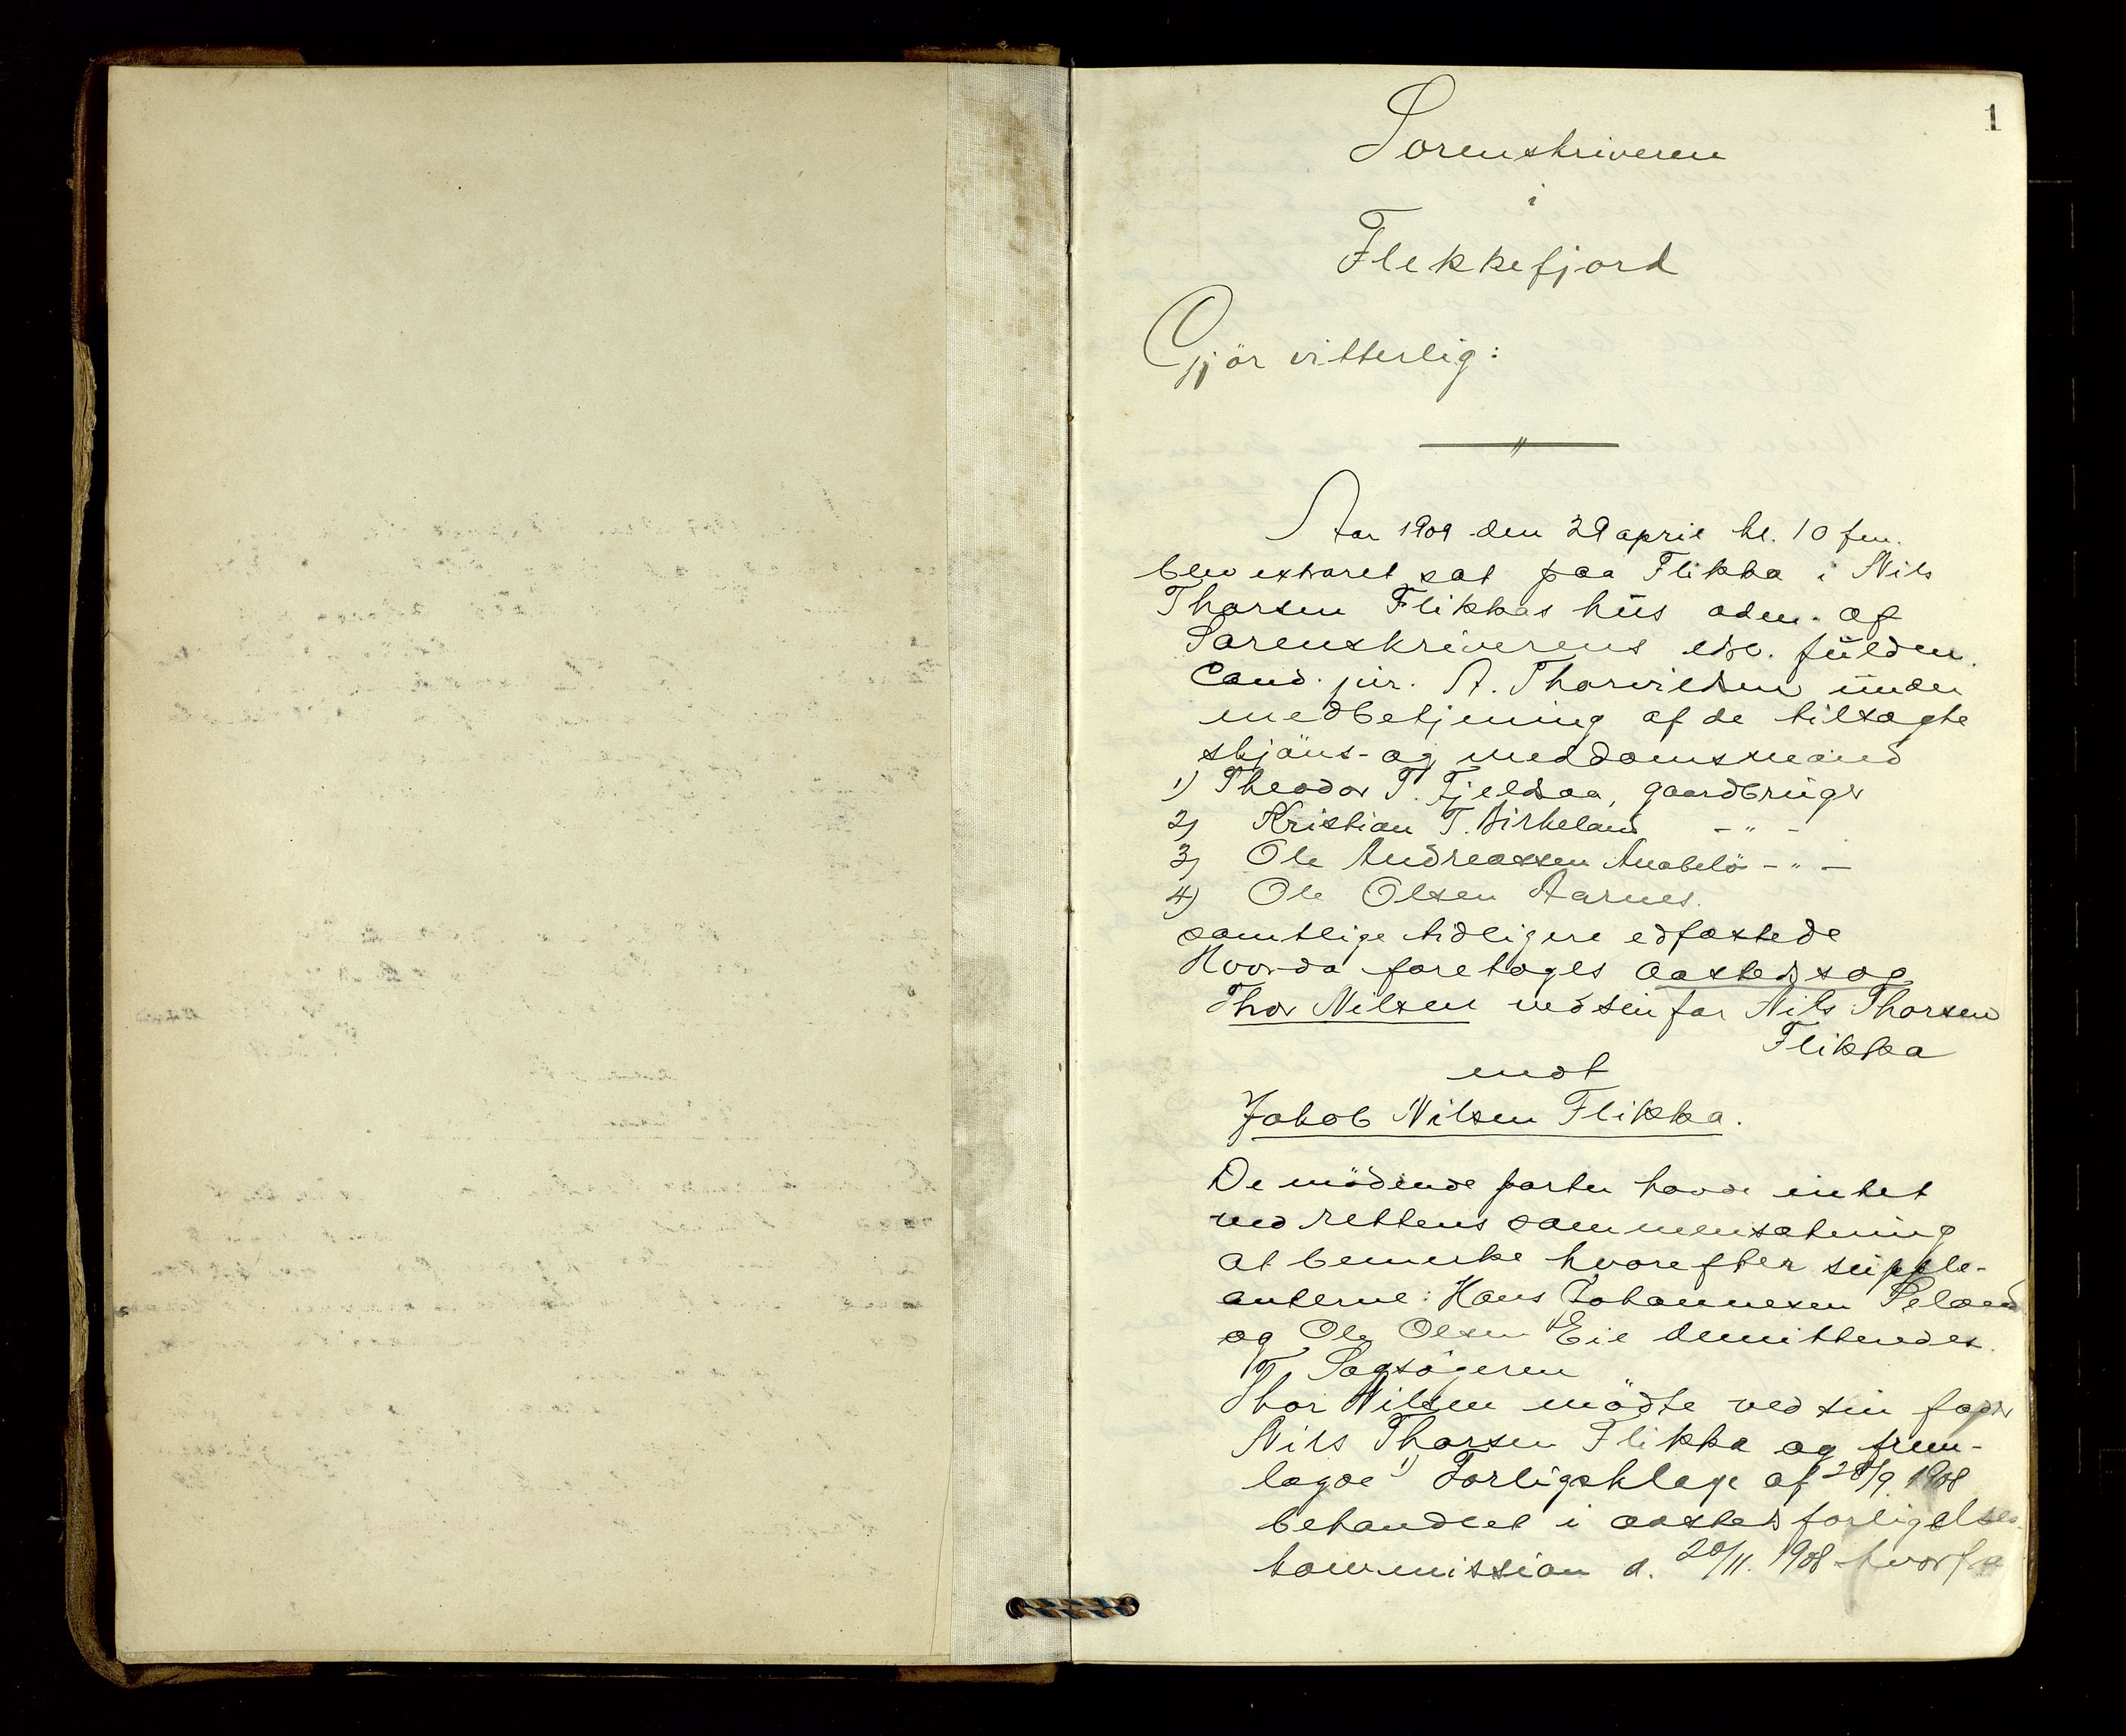 1
Sorenskriveren
i
Flekkefjord
Gjör vitterlig:
Aar 1909 den 29 april kl. 10 fm.
blev extraret sat paa Flikka i Nils
Thorsen Flikkas hus adm. af
Sorenskriverens edsv. fuldm.
Cand. jur. A. Thorvildsen under
medbetjening af de tilsagte
skjöns- og meddomsmænd
1) Theodor T. Fjeldsaa, gaardbruger
2) Kristian T. Birkeland - " -
3) Ole Andreassen Anabelö - " -
4) Ole Olsen Aarnes.
samtlige tidligere edfæstede
Hvorda foretoges aastedssag
Thor Nilsen ved sin far Nils Thorsen
Flikka
mot
Jakob Nilsen Flikka.
De mödende parter havde intet
ved rettens sammensætning
at bemerke hvorefter supple-
anterne: Hans Johannesen Peland
og Ole Olsen Eie demitteredes.
Sagsögeren
Thor Nilsen mödte ved sin fader
Nils Thorsen Flikka og frem-
lagde 1) Forligsklage af 28/9 1908
behandlet i aasteds forligelses-
kommission d. 20/11. 1908 hvorfra